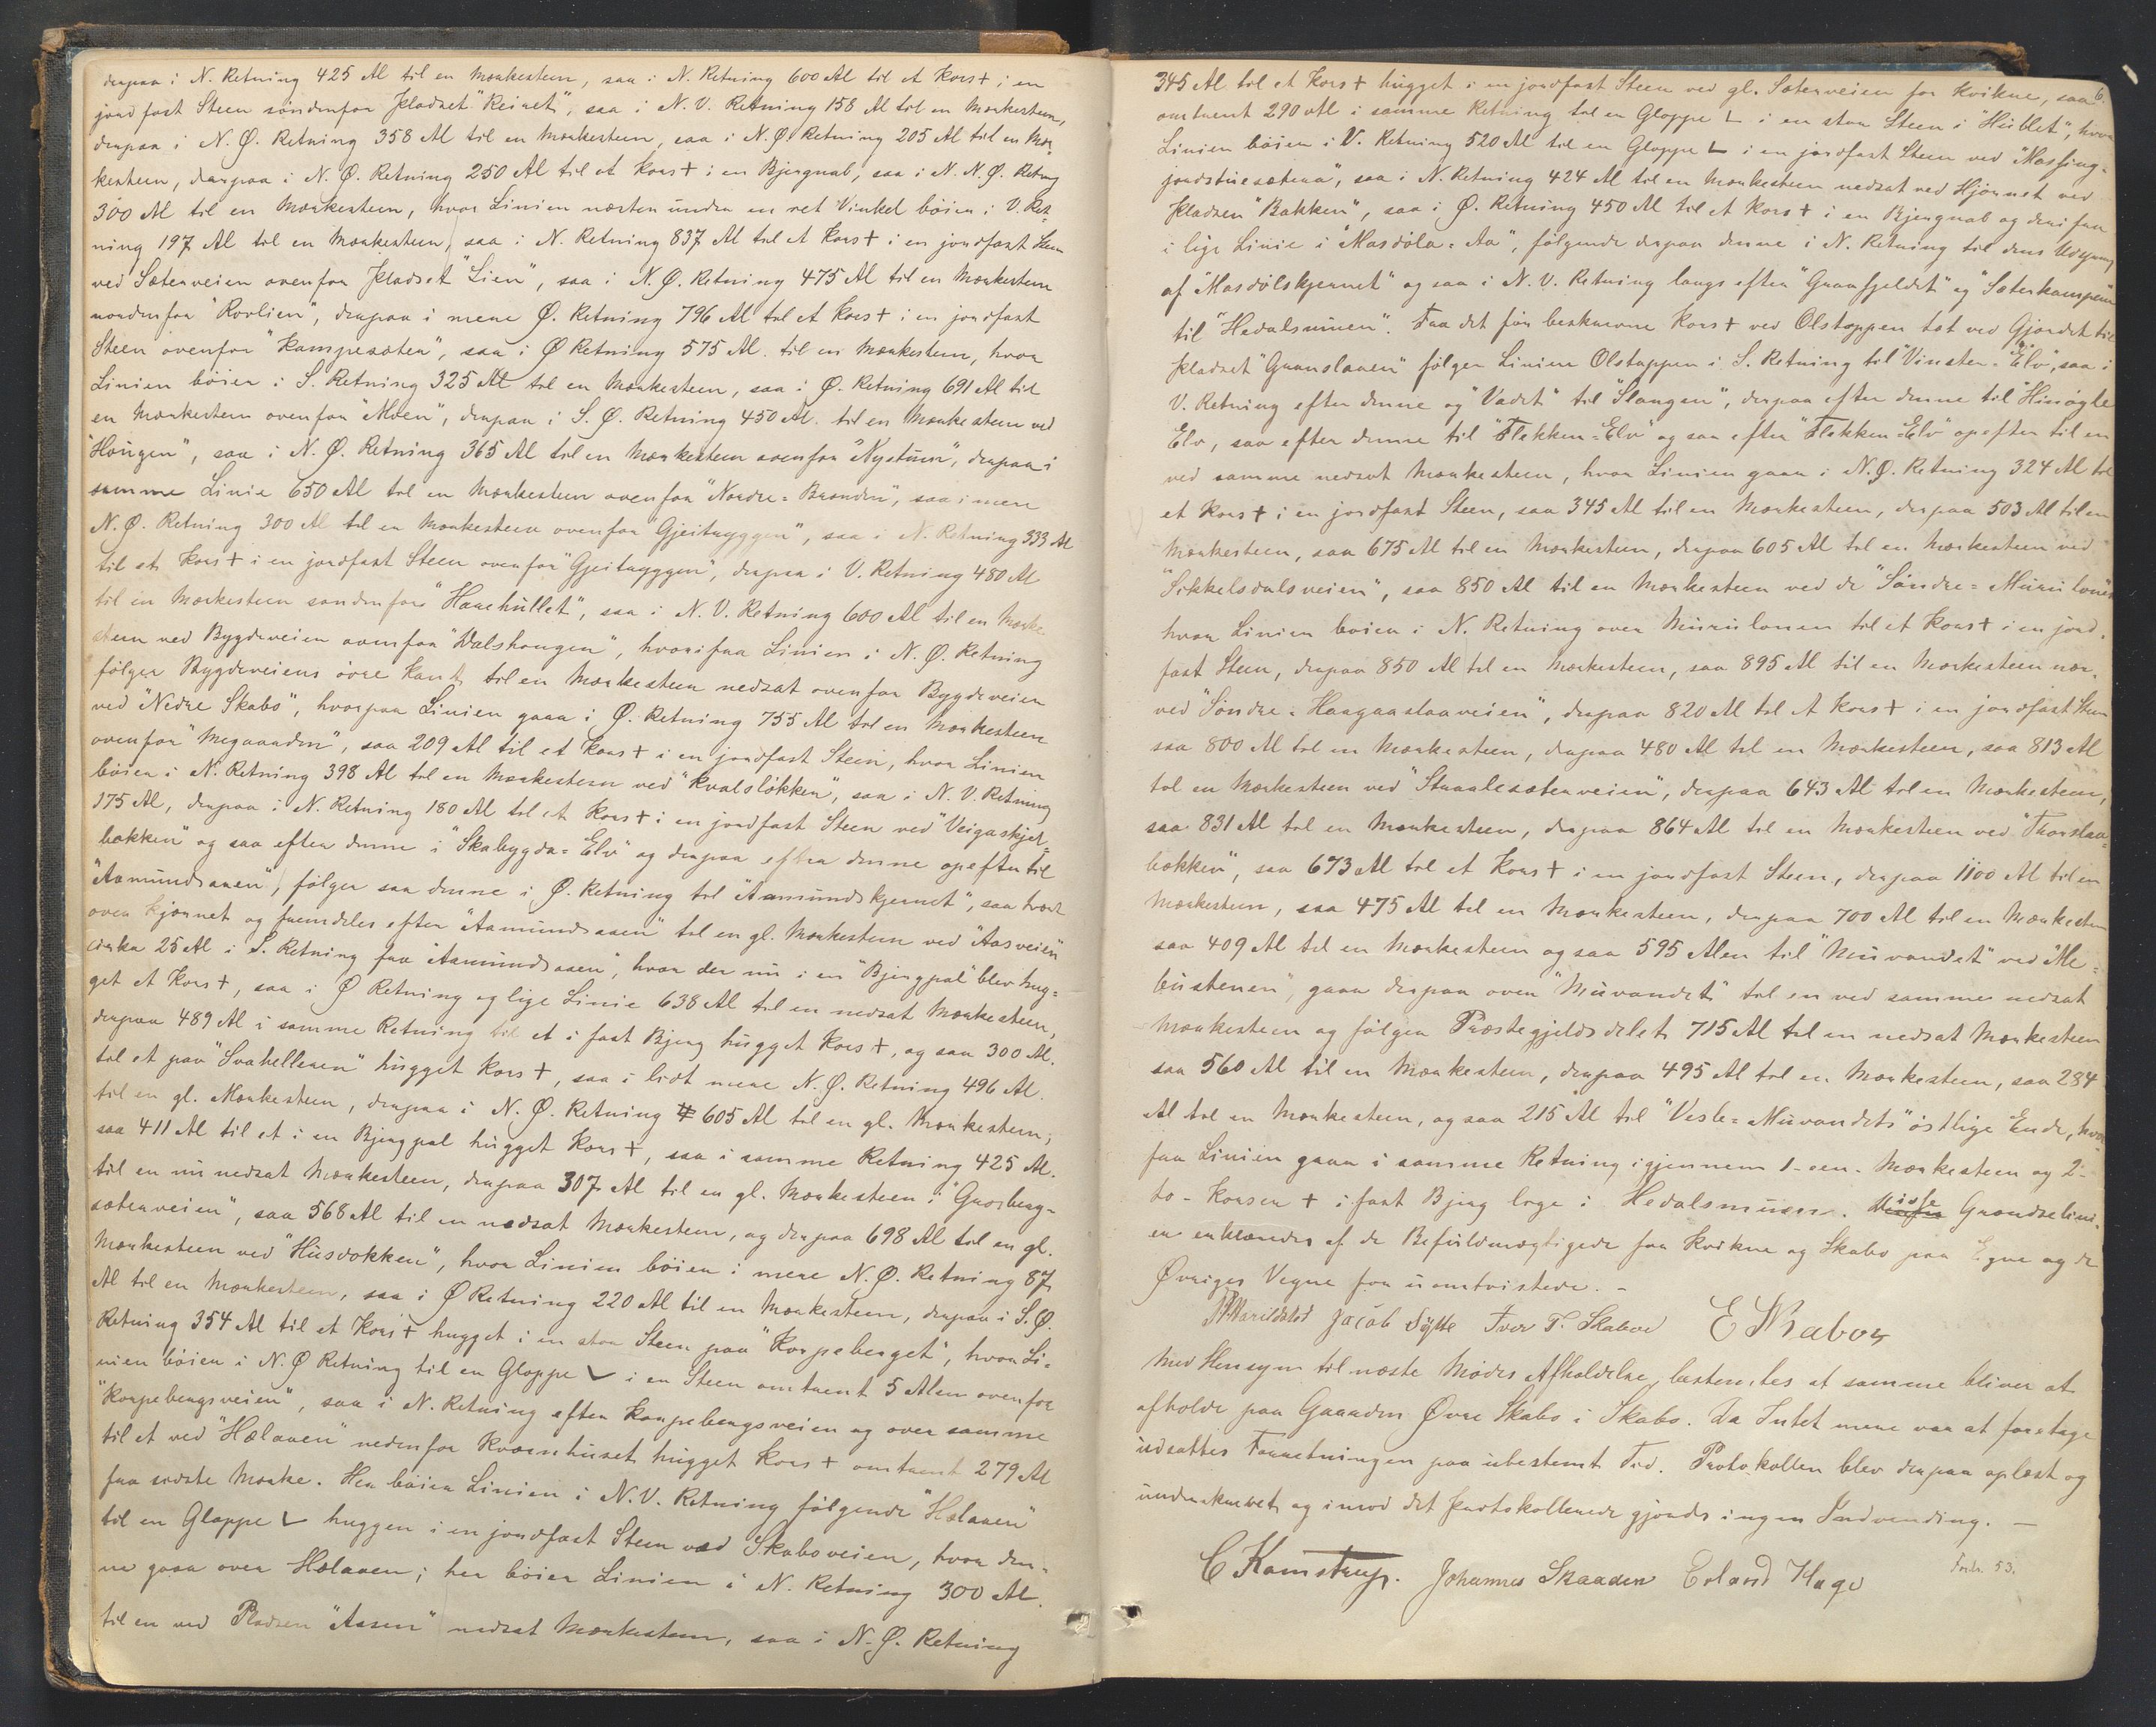 derpaa i N. Retning 425 Al til en Mærkesteen, saa i N. Retning 600 Al til et Kors + i en
jordfast Steen søndenfor Pladset "Reinet", saa i N. V. Retning 158 Al til en Mærkesteen,
derpaa i N. Ø. Retning 358 Al til en Mærkesteen, saa i N. Ø. Retning 205 Al til en Mær
kesteen, derpaa i N. Ø. Retning 250 Al til et Kors + i en Bjergnab, saa i N. N. Ø. Retning
300 Al til en Mærkesteen, hvor Linien næsten under en ret Vinkel bøier i V. Ret-
ning 197 Al til en Mærkesteen, saa i N. Retning 837 Al til et Kors + i en jordfast Steen
ved Sæterveien ovenfor Pladset "Lien", saa i N. Ø. Retning 475 Al til en Mærkesteen
nordenfor "Rovlien", derpaa i mere Ø. Retning 796 Al til et Kors + i en jordfast
Steen ovenfor "Kampesæter", saa i Ø Retning 575 Al. til en Mærkesteen, hvor
Linien bøier i S. Retning 325 Al til en Mærkesteen, saa i Ø. Retning 691 Al til
en Mærkesteen ovenfor "Moen", derpaa i S. Ø. Retning 450 Al. til en Mærkesteen ved
"Haugen", saa i N. Ø. Retning 365 Al til en Mærkesteen ovenfor "Nystuen", derpaa i
samme Linie 650 Al til en Mærkesteen ovenfor "Nordre=Brenden", saa i mere
N. Ø. Retning 300 Al til en Mærkesteen ovenfor "Gjeitryggen", saa i N. Retning 533 Al
til et Kors + i en jordfast Steen ovenfor "Gjeitryggen", derpaa i V. Retning 480 Al
til en Mærkesteen søndenfor "Harehullet", saa i N. V. Retning 600 Al til en Mærke
steen ved Bygdeveien ovenfor "Valshaugen", hvorifra Linien i N. Ø. Retning
følger Bygdeveiens øvre Kant til en Mærkesteen nedsat ovenfor Bygdeveien
ved "Nedre Skabo", hvorpaa Linien gaar i Ø. Retning 755 Al til en Mærkesteen
ovenfor "Megaarden", saa 209 Al til et Kors + i en jordfast Steen, hvor Linien
bøier i N. Retning 398 Al til en Mærkesteen ved "Kvalsløkken", saa i N. V. Retning
175 Al, derpaa i N. Retning 180 Al til et Kors + i en jordfast Steen ved "Veigaskjel-
bækken" og saa efter denne i "Skabygda=Elv" og derpaa efter denne opefter til
"Aamundsaaen", følger saa denne i Ø. Retning til "Aamundskjernet", saa tvært
over Kjernet og fremdeles efter "Aamundsaaen" til en gl. Mærkesteen ved "Aasveien"
cirka 25 Al i S. Retning fra "Aamundsaaen", hvor der nu i en "Bjergpal" blev hug=
get et Kors +, saa i Ø Retning og lige Linie 638 Al til en nedsat Mærkesteen,
derpaa 489 Al i samme Retning til et i fast Bjerg hugget Kors +, og saa 300 Al.
til et paa "Svahelleren" hugget Kors +, saa i lidt mere N. Ø. Retning 496 Al.
til en gl. Mærkesteen, derpaa i N. Ø. Retning 605 Al til en gl. Mærkesteen,
saa 411 Al til et i en Bjergpal hugget Kors +, saa i samme Retning 425 Al.
til en nu nedsat Mærkesteen, derpaa 307 Al til en gl. Mærkesteen i "Graaberg-
sæterveien", saa 568 Al til en nedsat Mærkesteen, og derpaa 698 Al til en gl.
Mærkesteen ved "Husdokken", hvor Linien bøier i mere N. Ø. Retning 87
Al til en Mærkesteen, saa i Ø Retning 220 Al til en Mærkesteen, derpaa i S. Ø.
Retning 354 Al til et Kors + hugget i en stor Steen paa "Korpeberget", hvor Li=
nien bøier i N. Ø Retning til en Gloppe ✓ i en Steen omtrent 5 Alen ovenfor
"Korpebergsveien", saa i N. Retning efter Korpebergsveien og over samme
til et ved "Hælaaen" nedenfor Kværnhuset hugget Kors + omtrent 279 Al
fra sidste Mærke. Her bøier Linien i N. V. Retning følgende "Hælaaen"
til en Gloppe ✓ huggen i en jordfast Steen ved Skaboveien, hvor den-
ne gaar over Hælaaen; her bøier Linien i N. Retning 300 Al.
til en ved Pladsen "Aasen" nedsat Mærkesteen, saa i N. Ø. Retning
6.
345 Al til et Kors + hugget i en jordfast Steen ved gl. Sæterveien for Kvikne, saa
omtrent 290 Al i samme Retning til en Gloppe ✓ i en stor Steen i "Hullet", hvor
Linien bøier i V. Retning 520 Al til en Gloppe ✓ i en jordfast Steen ved "Massing-
jordstuesæteren", saa i N. Retning 424 Al til en Mærkesteen nedsat ved Hjørnet ved
Pladsen "Bakken", saa i Ø. Retning 450 Al til et Kors + i en Bjergnab og derifra
i lige Linie i "Masdøla=Aa", følgende derpaa denne i N. Retning til dens Udspring
af "Masdølskjernet" og saa i N. V. Retning langs efter "Graafjeldet" og "Sæterkampen"
til "Hedalsmuen". Fra det før beskrevne Kors + ved Olstappen tæt ved Gjærdet til
Pladset "Graneslaaen" følger Linien Olstappen i S. Retning til "Vinster=Elv", saa i
V. Retning efter denne og "Vadet" til "Slangen", derpaa efter denne til "Hinøgle
Elv, saa efter denne til "Flekken=Elv" og saa efter "Flekken=Elv" opefter til en
ved samme nedsat Mærkesteen, hvor Linien gaar i N. Ø. Retning 324 Al til
et Kors + i en jordfast Steen, saa 345 Al til en Mærkesteen, derpaa 503 Al til en
Mærkesteen, saa 675 Al til en Mærkesteen, derpaa 605 Al til en Mærkesteen ved
"Sikkelsdalsveien", saa 850 Al til en Mærkesteen ved de "Søndre=Murulonen"
hvor Linien bøier i N. Retning over Murulonen til et Kors + i en jord-
fast Steen, derpaa 850 Al til en Mærkesteen, saa 895 Al til en Mærkesteen nær-
ved "Søndre-Haagaaslaaveien", derpaa 820 Al til et Kors + i en jordfast Steen
saa 800 Al til en Mærkesteen, derpaa 480 Al til en Mærkesteen, saa 813 Al
til en Mærkesteen ved "Straalesæterveien", derpaa 643 Al til en Mærkesteen,
saa 831 Al til en Mærkesteen, derpaa 864 Al til en Mærkesteen ved "Thorslaa=
bækken", saa 673 Al til et Kors + i en jordfast Steen, derpaa 1100 Al til en
Mærkesteen, saa 475 Al til en Mærkesteen, derpaa 700 Al til en Mærkesteen
saa 409 Al til en Mærkesteen og saa 595 Alen til "Muvandet" ved "Me=
bustenen", gaar derpaa over "Muvandet" til en ved samme nedsat
Mærkesteen og følger Præstegjeldsdelet 715 Al til en nedsat Mærkesteen
saa 560 Al til en Mærkesteen, derpaa 495 Al til en Mærkesteen, saa 284
Al til en Mærkesteen, og saa 215 Al til "Vesle=Muvandets" østlige Ende, hvor
fra Linien gaar i samme Retning igjennem 1-een- Mærkesteen og 2-
to- Korser + i fast Bjerg lige i Hedalsmuen. Disse Grændselini-
er erklæredes af de Befuldmægtigede fra Kvikne og Skabo paa Egne og de
Øvriges Vegne for uomtvistede. -
Jacob Sylte Iver T. Skaboe E Skaboe
Med Hensyn til næste Mødes Afholdelse, bestemtes at samme bliver at
afholde paa Gaarden Øvre Skabo i Skabo. Da Intet mere var at foretage
udsattes Forretningen paa ubestemt Tid. Protokollen blev derpaa oplæst og
underskrevet og imod det Protokollerede gjordes ingen Indvending. —
C Kamstrup. Johannes Skaaden Erland Hage
53.